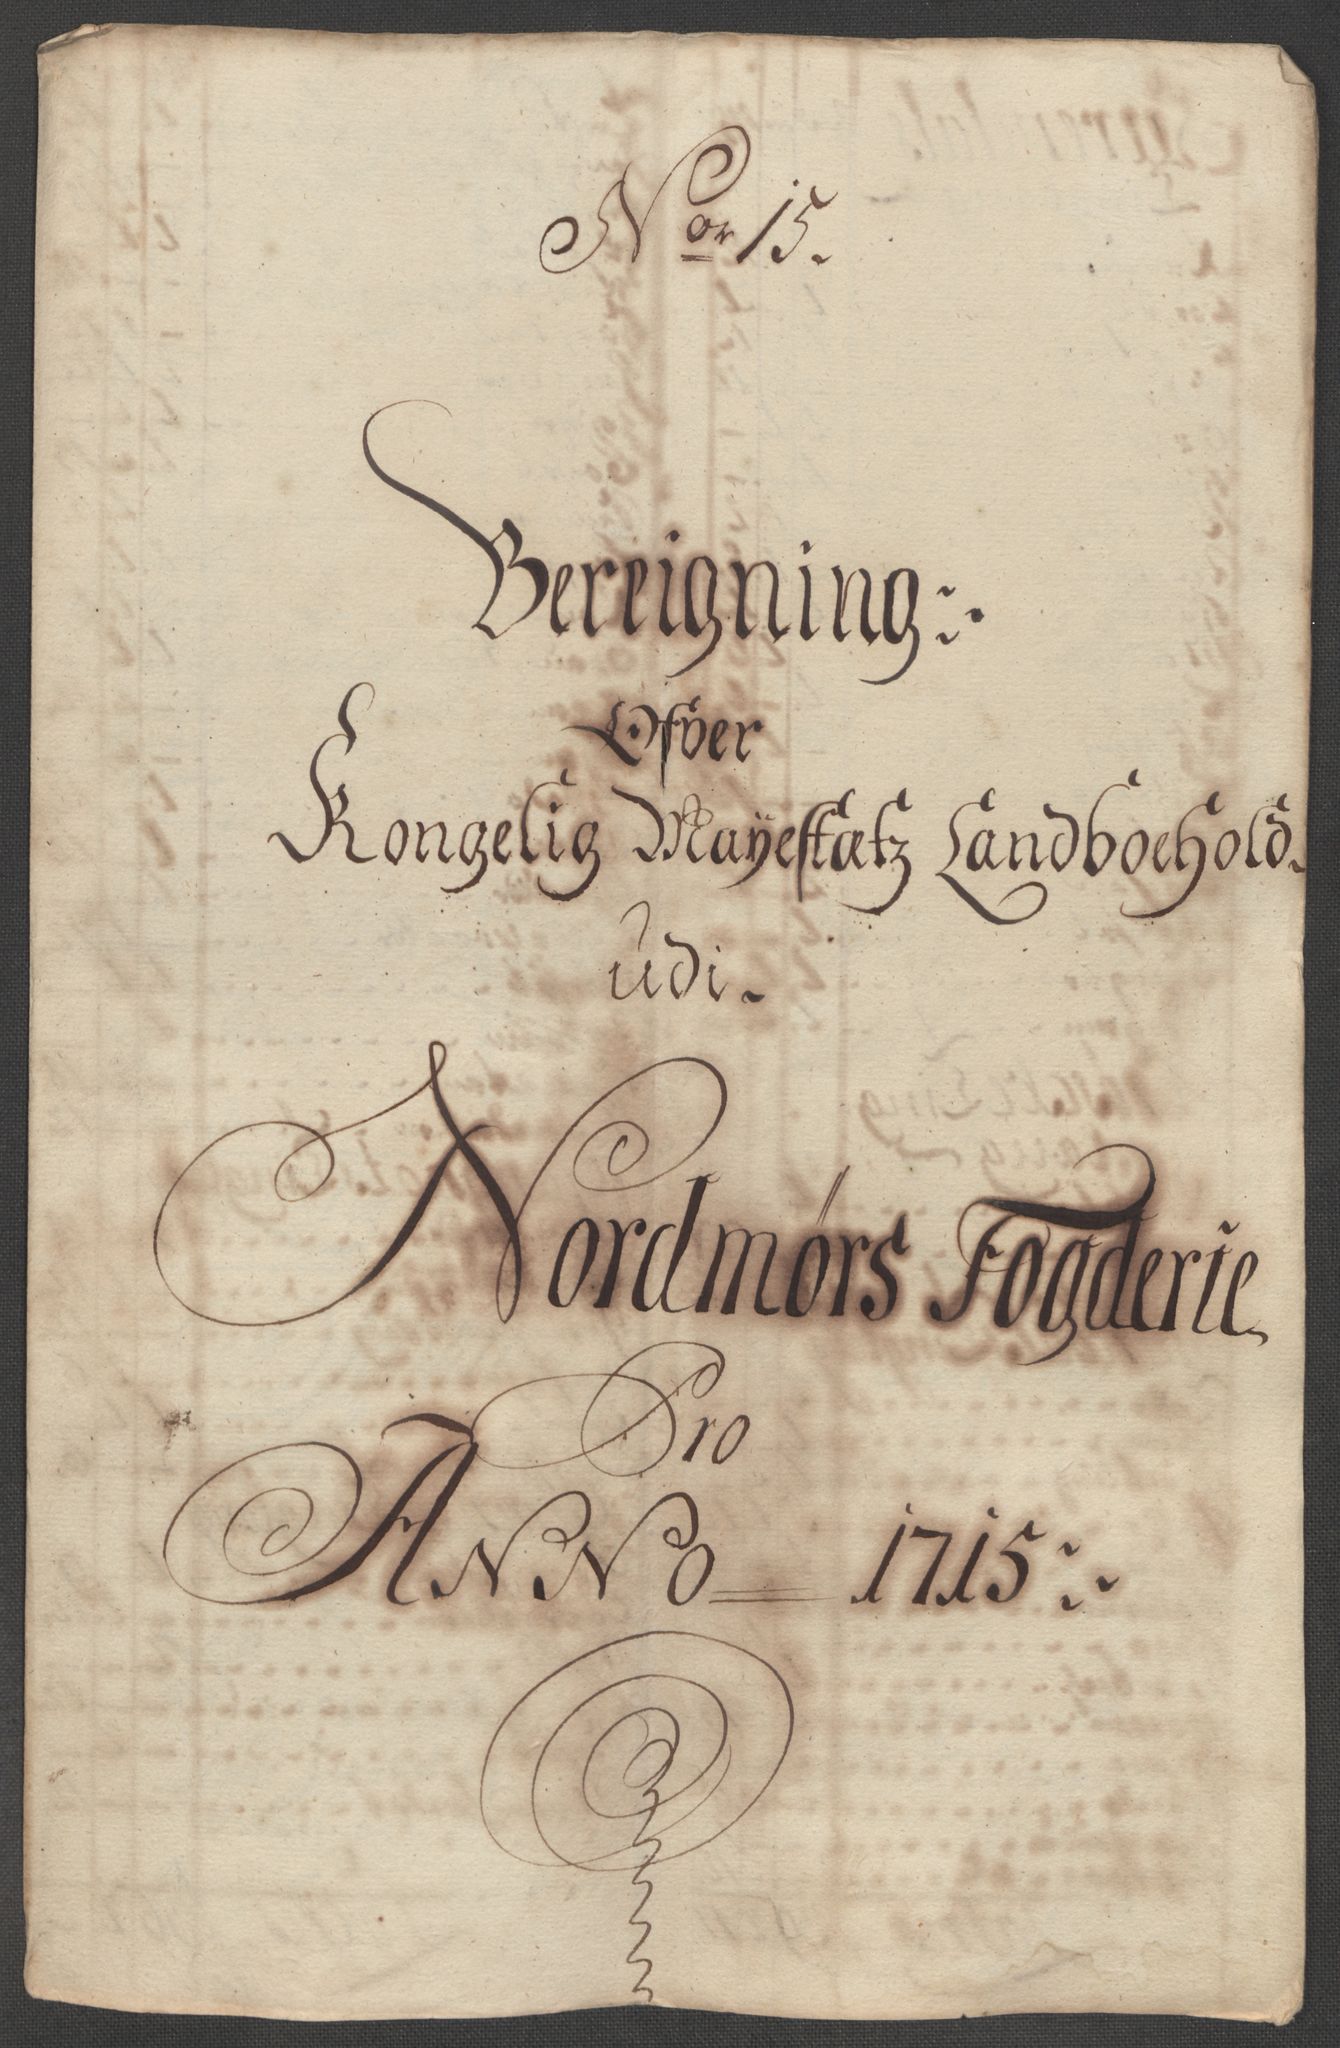 Nor 15.
Bereigning:
Ofver
Kongelig Mayestætz Landboehold.
udi.
Nordmørs Fogderie
Pro
ANNO 1715: